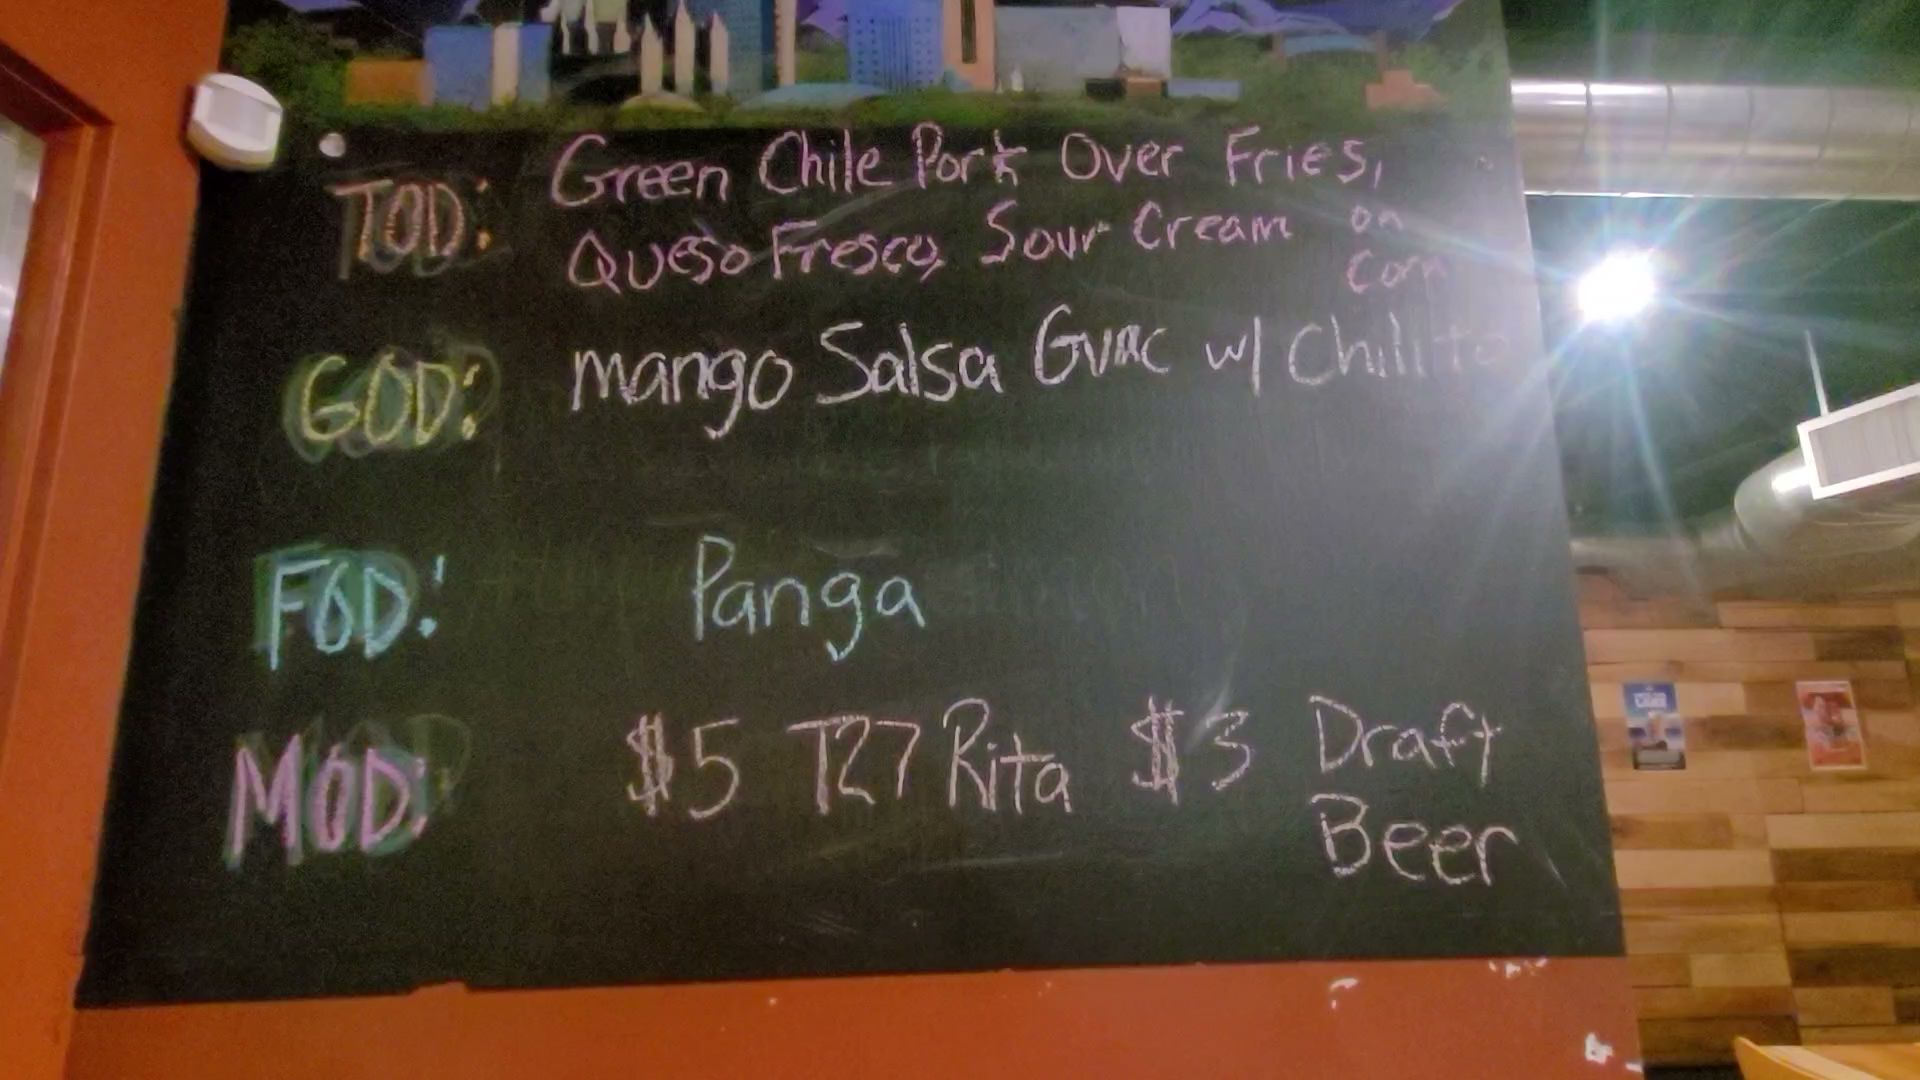 TOD: Green Chile Pork Over Fries,
Queso Fresco, Sour Cream on
Corn
GOD: mango Salsa Guac w/ Chillito
FOD: Panga
MOD: $5 T27 Rita $3 Draft
Beer